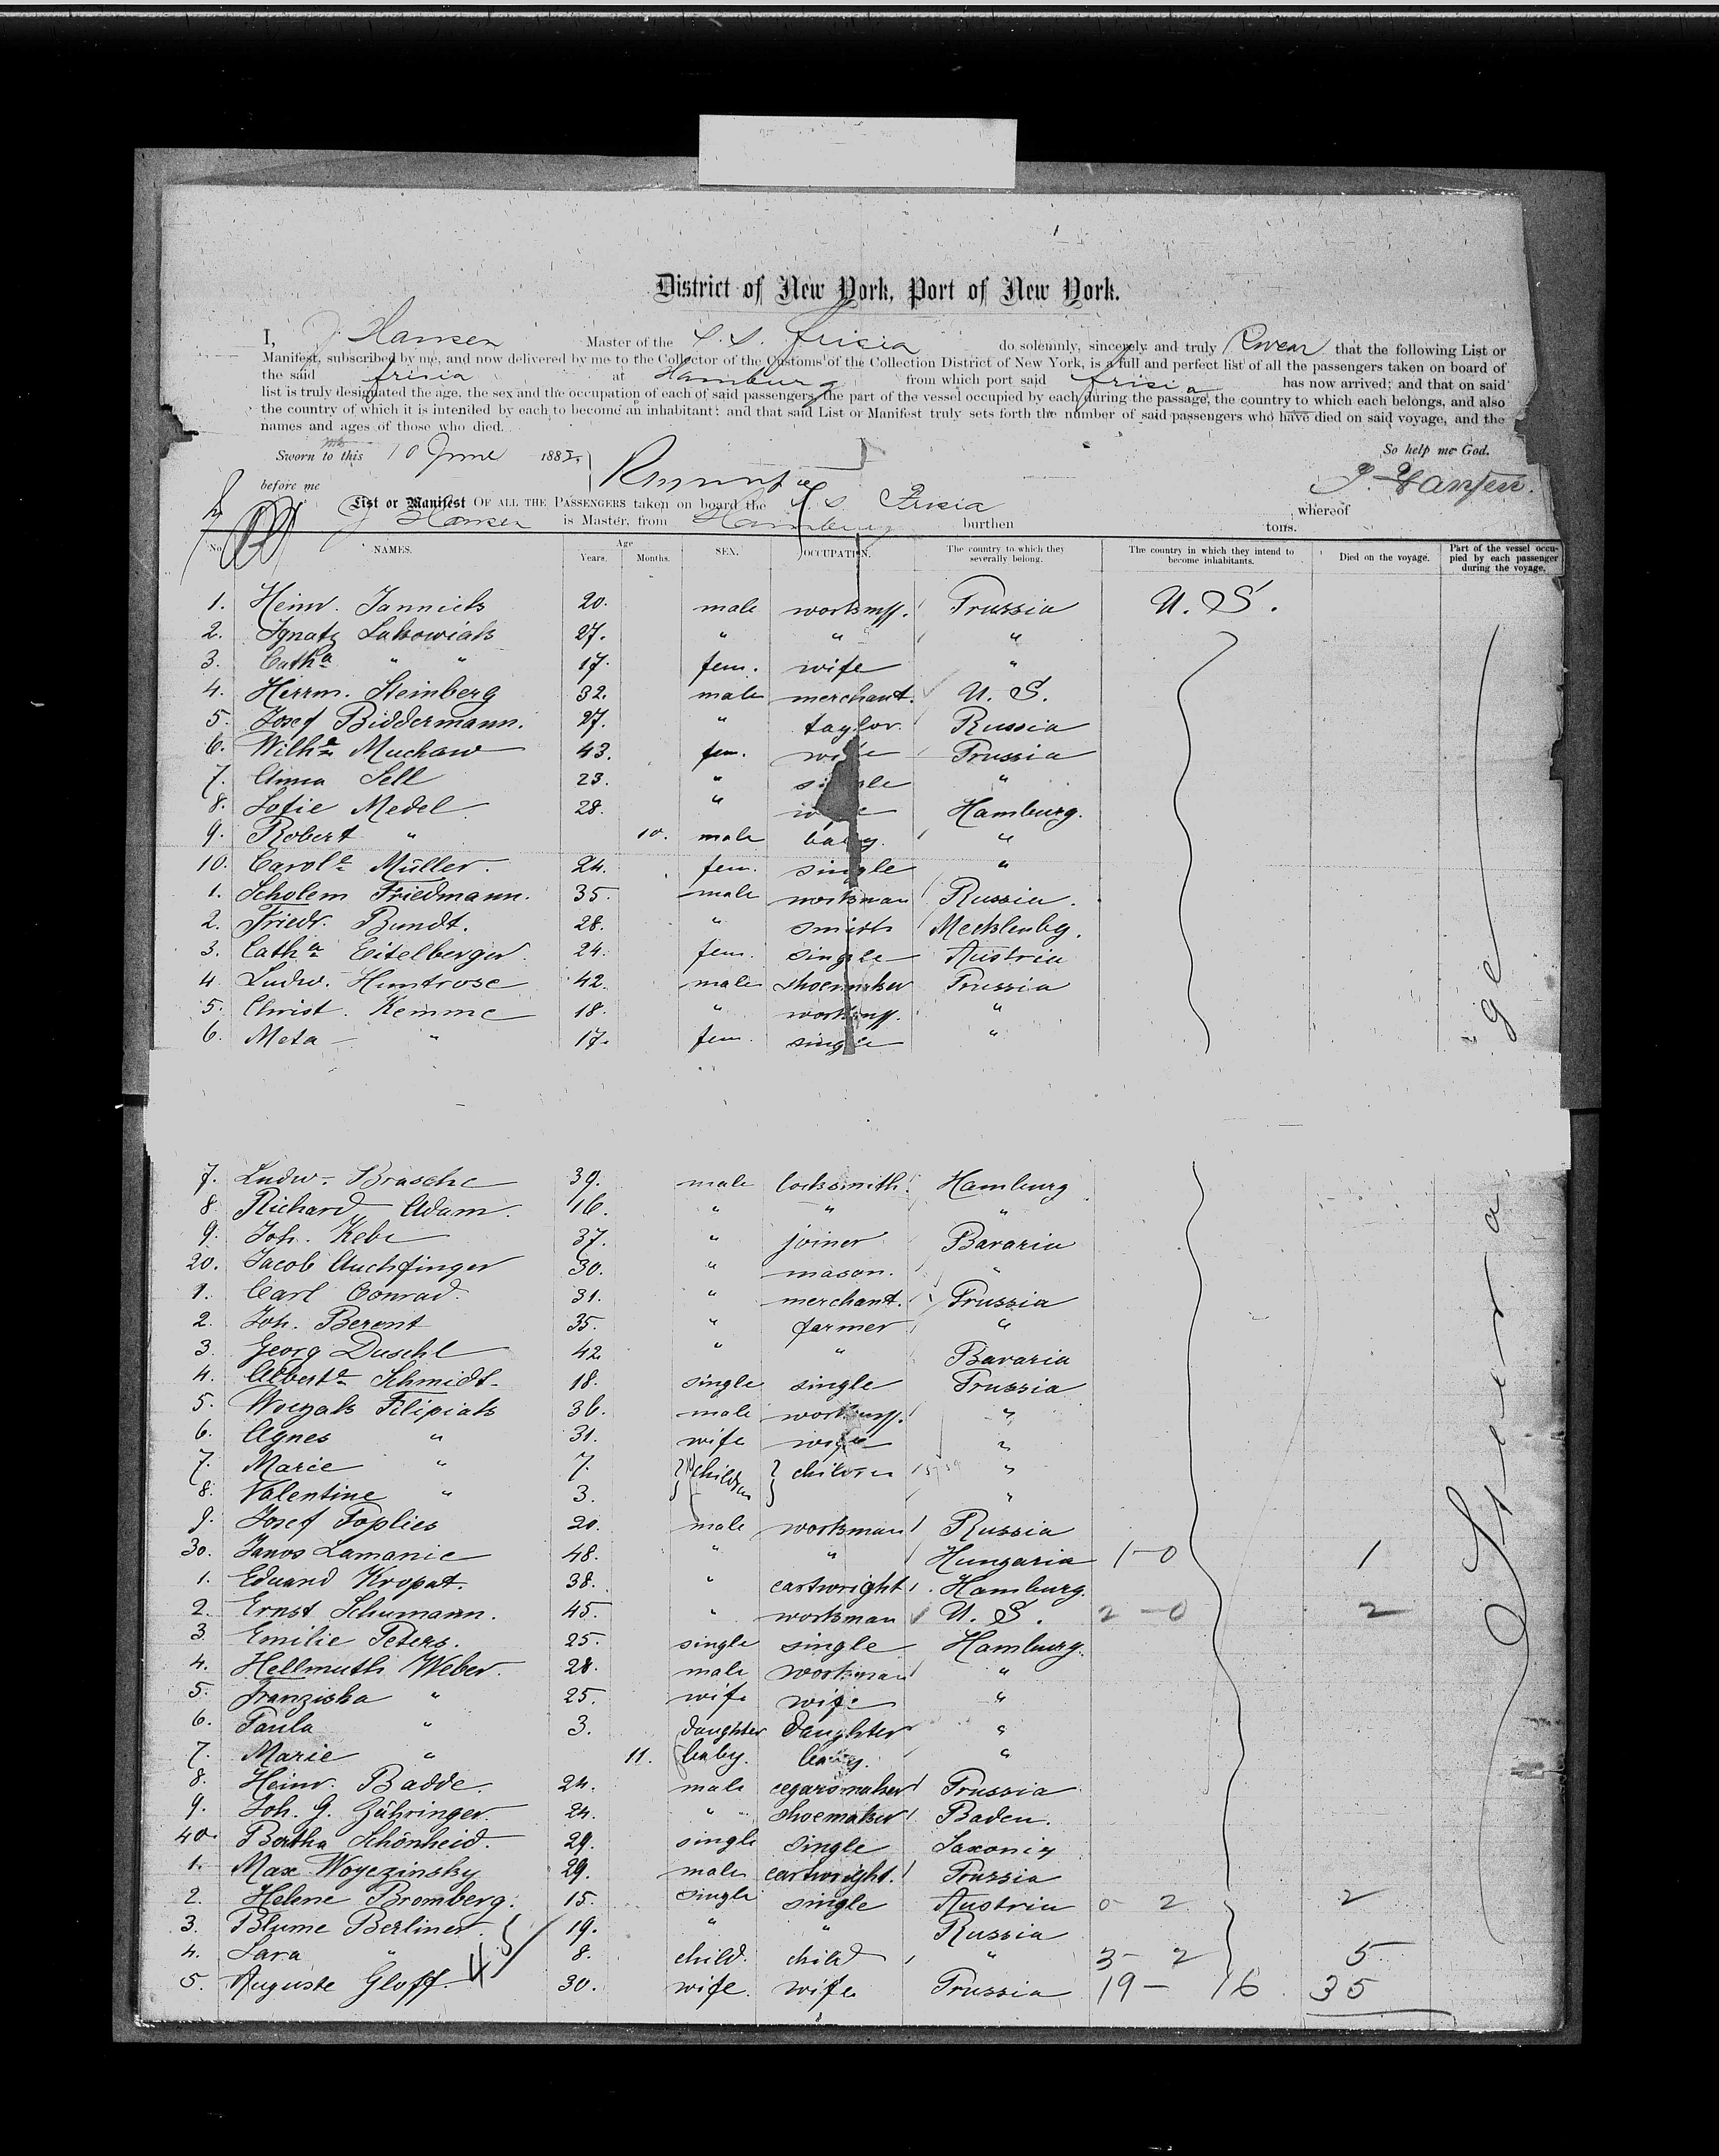 District of New York, Port of New York.
I, J Hansen Master of the S. S. Frisia do solemnly, sincerely and truly swear that the following List or
Manifest, subscribed by me, and now delivered by me to the Collector of the Customs of the Collection District of New York, is a full and perfect list of all the passengers taken on board of
the said Frisia at Hamburg from which port said Frisia has now arrived; and that on said
list is truly designated the age, the sex and the occupation of each of said passengers, the part of the vessel occupied by each during the passage, the country to which each belongs, and also
the country of which it is intended by each to become an inhabitant; and that said List or Manifest truly sets forth the number of said passengers who have died on said voyage, and the
names and ages of those who died.
Sworn to this 10 June 1882. So help me God.
before me J. Hansen.
List or Manifest OF ALL THE PASSENGERS taken on board the S. S. Frisia whereof
J Hansen is Master, from Hamburg burthen tons.
No. NAMES. Age Years. Months. SEX. OCCUPATION. The country to which they severally belong. The country in which they intend to become inhabitants. Died on the voyage. Part of the vessel occupied by each passenger during the voyage.
1. Heinr. Jannick 20. male workm. Prussia U. S.
2. Ignatz Lakowiak 27. " " "
3. Catha " " 17. fem. wife "
4. Herrm. Steinberg 32. male merchant. U. S.
5. Josef Biddermann. 27. " taylor. Russia
6. Wilhe Muchaw 43. fem. wife Prussia
7. Anna Sell 23. " single "
8. Sofie Medel 28. " wife Hamburg.
9. Robert " 10. male baby. "
10. Carole Müller. 24. fem. single "
1. Scholem Friedmann. 35. male workman Russia.
2. Friedr. Bundt. 28. " smith Mecklenbg.
3. Catha Eitelberger. 24. fem. single Austria
4 Ludw. Humtrose 42. male shoemaker Prussia
5. Christ. Kemme 18. " workm. "
6. Meta " 17. fem. single "
7. Ludw. Brasche 39. male locksmith. Hamburg
8 Richard Adam. 16. " " "
9. Joh. Kebe 37. " joiner Bavaria
20. Jacob Auchfinger 30. " mason. "
1. Carl Conrad. 31. " merchant. Prussia
2. Joh. Berent 35. " farmer "
3. Georg Duschl 42 " " Bavaria
4. Alberte Schmidt 18. single single Prussia
5. Woyzak Filipiak 36. male workm. "
6. Agnes " 31. wife wife "
7. Marie " 7. children children "
8. Valentine " 3. "
9. Josef Toplies 20. male workman Russia
30. Janos Lamanic 48. " " Hungaria 1-0 1
1. Eduard Kropat. 38. " cartwright Hamburg.
2. Ernst Schumann. 45. " workman U. S. 2-0 2
3 Emilie Peters. 25. single single Hamburg.
4. Hellmuth Weber. 28. male workman "
5. Franziska " 25. wife wife "
6. Paula " 3. daughter daughter "
7. Marie " 11. baby. baby. "
8. Heinr. Badde 24. male cegarsmaker Prussia
9. Joh. G. Zähringer. 24. " shoemaker Baden.
40. Bertha Schönheid. 29. single single Saxony
1. Max Woyezinsky 29. male cartwright. Prussia
2. Helene Bromberg. 15. single single Austria 0 2 2
3. Blume Berliner. 19. " " Russia
4. Sara " 8. child. child " 3- 2 5
5. Auguste Gloff. 45 30. wife. wife. Prussia 19- 16 35
Steerage